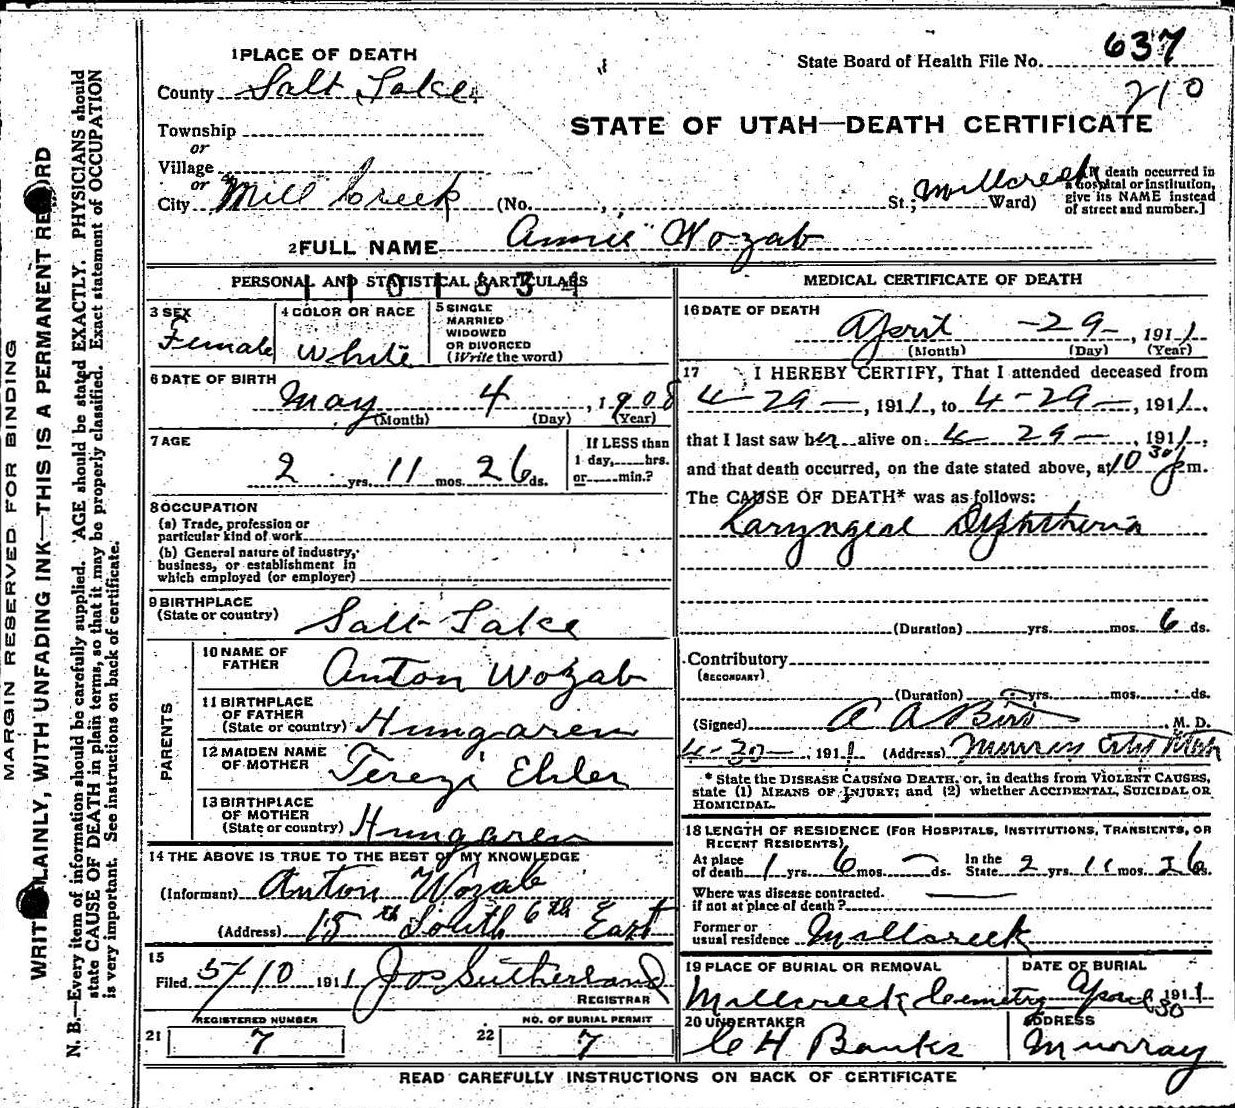 MARGIN RESERVED FOR BINDING
WRITE PLAINLY, WITH UNFADING INK—THIS IS A PERMANENT RECORD
N. B.—Every item of information should be carefully supplied. AGE should be stated EXACTLY. PHYSICIANS should
state CAUSE OF DEATH in plain terms, so that it may be properly classified. Exact statement of OCCUPATION
is very important. See instructions on back of certificate.
1 PLACE OF DEATH
County Salt Lake
Township
or
Village
or
City Mill Creek (No. , St.; Millcreek Ward)
State Board of Health File No. 637
210
STATE OF UTAH—DEATH CERTIFICATE
[If death occurred in
a hospital or institution,
give its NAME instead
of street and number.]
2 FULL NAME Annie Wozab
PERSONAL AND STATISTICAL PARTICULARS
3 SEX
Female
4 COLOR OR RACE
White
5 SINGLE
MARRIED
WIDOWED
OR DIVORCED
(Write the word)
6 DATE OF BIRTH
May 4, 1908
(Month) (Day) (Year)
7 AGE
2 yrs. 11 mos. 26 ds.
If LESS than
1 day, hrs.
or min.?
8 OCCUPATION
(a) Trade, profession or
particular kind of work
(b) General nature of industry,
business, or establishment in
which employed (or employer)
9 BIRTHPLACE
(State or country) Salt Lake
PARENTS
10 NAME OF
FATHER Anton Wozab
11 BIRTHPLACE
OF FATHER
(State or country) Hungaren
12 MAIDEN NAME
OF MOTHER Terezi Ehler
13 BIRTHPLACE
OF MOTHER
(State or country) Hungaren
14 THE ABOVE IS TRUE TO THE BEST OF MY KNOWLEDGE
(Informant) Anton Wozab
(Address) 15th South 6th East
15
Filed 5/10 1911 Jos Sutherland
REGISTRAR
REGISTERED NUMBER
21 7
NO. OF BURIAL PERMIT
22 7
MEDICAL CERTIFICATE OF DEATH
16 DATE OF DEATH
April -29-, 1911
(Month) (Day) (Year)
17 I HEREBY CERTIFY, That I attended deceased from
4-29-, 1911, to 4-29-, 1911,
that I last saw her alive on 4 29-, 1911,
and that death occurred, on the date stated above, at 10 30 p m.
The CAUSE OF DEATH* was as follows:
Laryngeal Diphtheria
(Duration) yrs. mos. 6 ds.
Contributory
(SECONDARY)
(Duration) yrs. mos. ds.
(Signed) M. D.
4-30-, 1911 (Address) Murray City Utah
* State the DISEASE CAUSING DEATH, or, in deaths from VIOLENT CAUSES,
state (1) MEANS OF INJURY; and (2) whether ACCIDENTAL, SUICIDAL OR
HOMICIDAL.
18 LENGTH OF RESIDENCE (FOR HOSPITALS, INSTITUTIONS, TRANSIENTS, OR
RECENT RESIDENTS)
At place
of death 1 yrs. 6 mos. - ds.
In the
State 2 yrs. 11 mos. 26 ds.
Where was disease contracted.
if not at place of death?
Former or
usual residence Millcreek
19 PLACE OF BURIAL OR REMOVAL
Millcreek Cemetry
DATE OF BURIAL
April 30 1911
20 UNDERTAKER
C H Banks
ADDRESS
Murray
READ CAREFULLY INSTRUCTIONS ON BACK OF CERTIFICATE